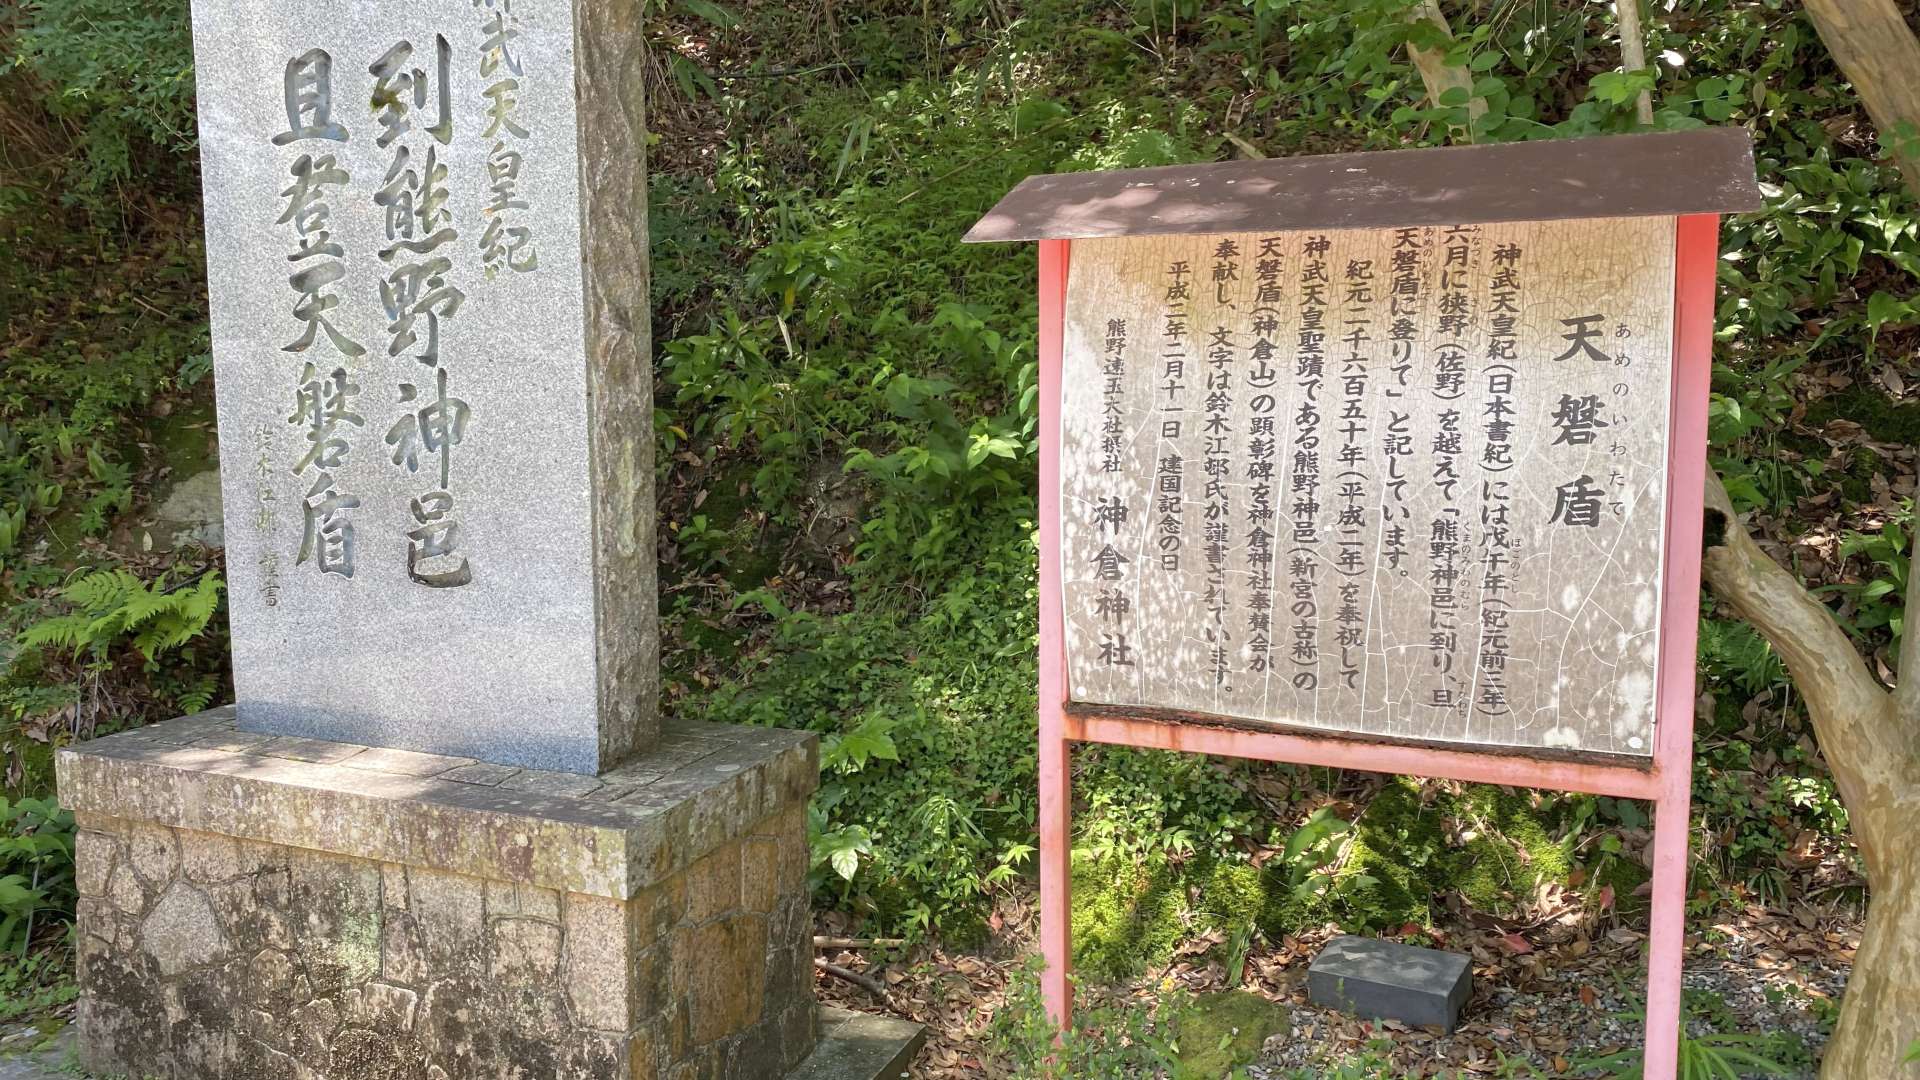 武天皇紀
到熊野神邑
且登天磐盾
鈴木江邨謹書
あめのいわたて
天磐盾
神武天皇紀(日本書紀)には戊午年(紀元前三年)
ぼごのとし
六月に狭野(佐野)を越えて「熊野神邑に到り、且
みなづき さの くまのみわのむら すなわち
天磐盾に登りて」と記しています。
あめのいわたて
紀元二千六百五十年(平成二年)を奉祝して
神武天皇聖蹟である熊野神邑(新宮の古称)の
天磐盾(神倉山)の顕彰碑を神倉神社奉賛会が
奉献し、文字は鈴木江邨氏が謹書されています。
平成二年二月十一日 建国記念の日
熊野速玉大社摂社 神倉神社